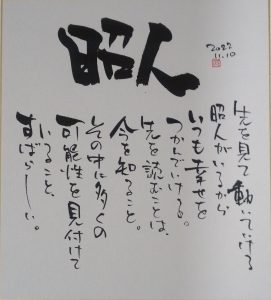 昭人
2022
11.10
先を見て動いていける
昭人がいるから
いつも幸せを
つかんでいける。
先を読むことは、
今を知ること。
その中に多くの
可能性を見付けて
いること、
すばらしい。